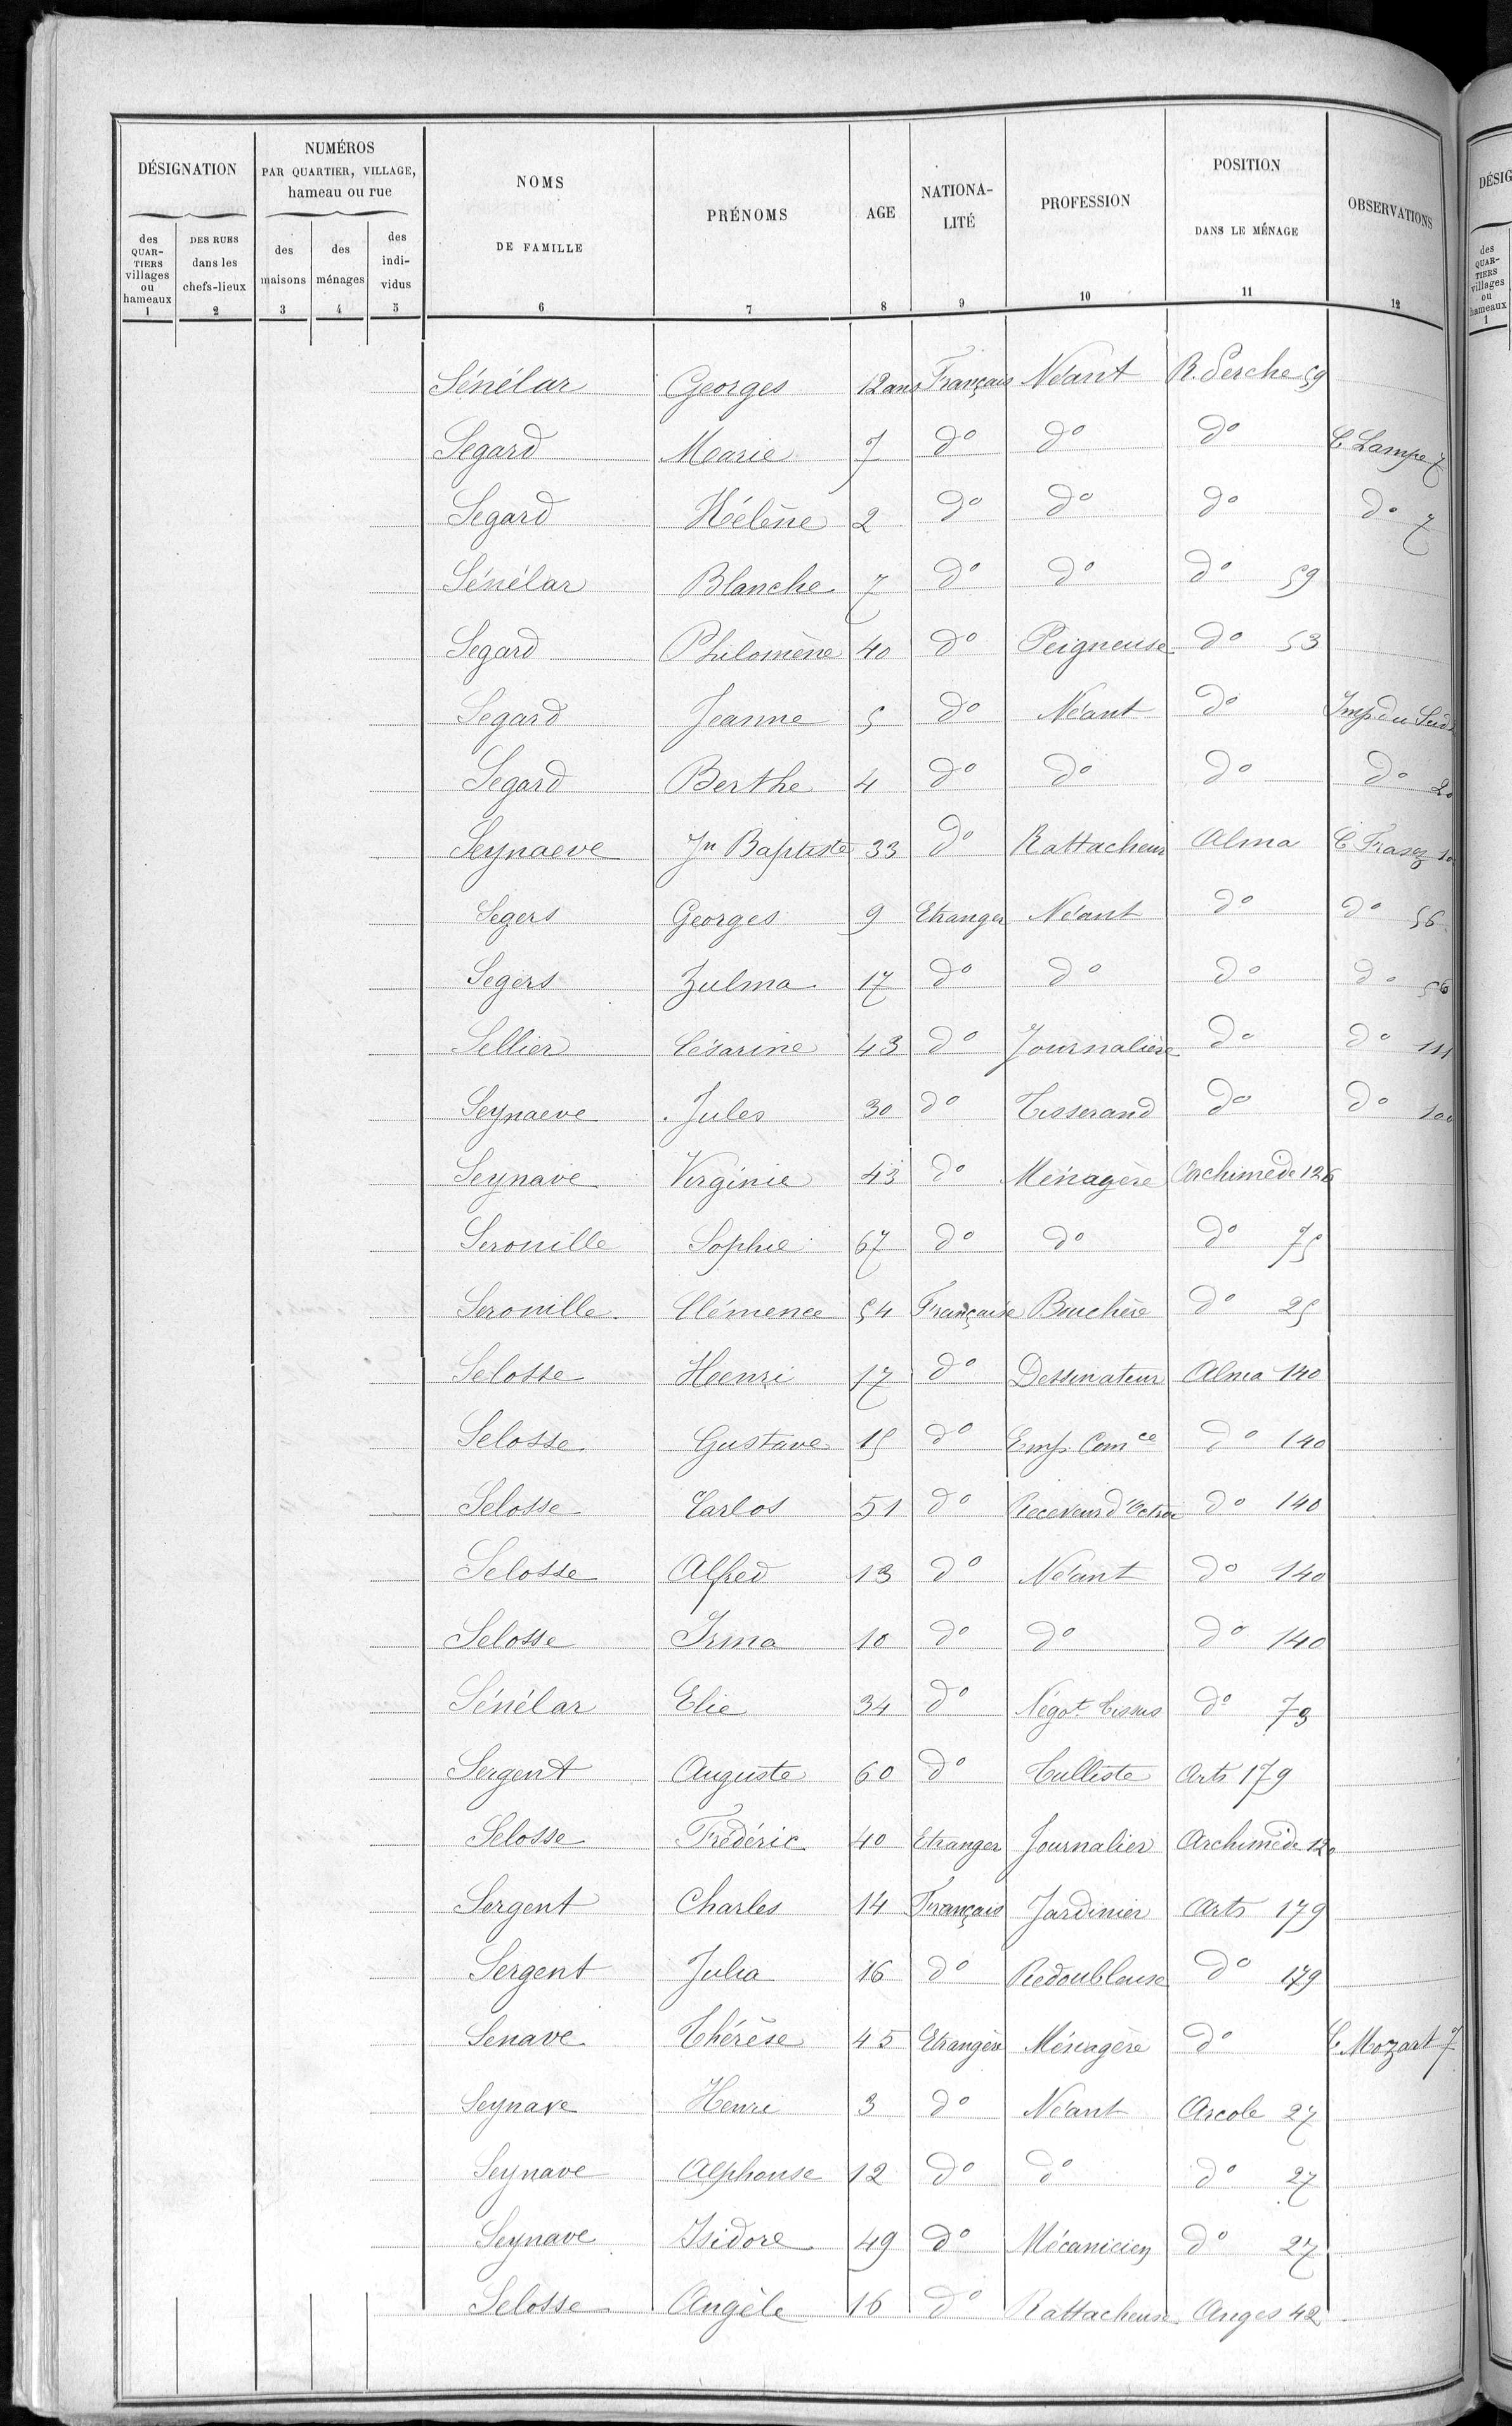 DÉSIGNATION
NUMÉROS
PAR QUARTIER, VILLAGE,
hameau ou rue
NOMS
DE FAMILLE
PRÉNOMS
AGE
NATIONA-
LITÉ
PROFESSION
POSITION
DANS LE MÉNAGE
OBSERVATIONS
des
QUAR-
TIERS
villages
ou
hameaux
DES RUES
dans les
chefs-lieux
des
maisons
des
ménages
des
indi-
vidus
1 2 3 4 5 6 7 8 9 10 11 12
Sénélar Georges 12 ans Français Néant R. Perche 59
Segard Marie 7 do do do C Lampe 7
Segard Hélène 2 do do do do 7
Sénélar Blanche 7 do do do 59
Segard Philomène 40 do Peigneuse do 53
Segard Jeanne 5 do Néant do Imp du Sud
Segard Berthe 4 do do do do 20
Seynaeve Jn Baptiste 33 do Rattacheur Alma C Frasez
Segers Georges 9 Etranger Néant do do 56
Segers Zulma 17 do do do do 56
Sellier Césarine 43 do Journalière do do 111
Seynaeve Jules 30 do Tisserand do do 100
Seynave Virginie 43 do Ménagère Archimède 126
Serouille Sophie 67 do do do 75
Serouille Clémence 54 Française Buchère do 25
Selosse Henri 17 do Dessinateur Alma 140
Selosse Gustave 15 do Emp. Comce do 140
Selosse Carlos 51 do Receveur d'Octroi do 140
Selosse Alfred 13 do Néant do 140
Selosse Irma 10 do do do 140
Sénélar Elie 34 do Négot Tissus do 73
Sergent Auguste 60 do Tulliste Arts 179
Selosse Frédéric 40 Etranger Journalier Archimède 120
Sergent Charles 14 Français Jardinier Arts 179
Sergent Julia 16 do Redoubleuse do 179
Senave Thérèse 45 Etrangère Ménagère do C. Mozart 7
Seynave Henri 3 do Néant Arcole 27
Seynave Alphonse 12 do do do 27
Seynave Isidore 49 do Mécanicien do 27
Selosse Angèle 16 do Rattacheuse Anges 42
DÉSIG
des
QUAR-
TIERS
villages
ou
hameaux
1